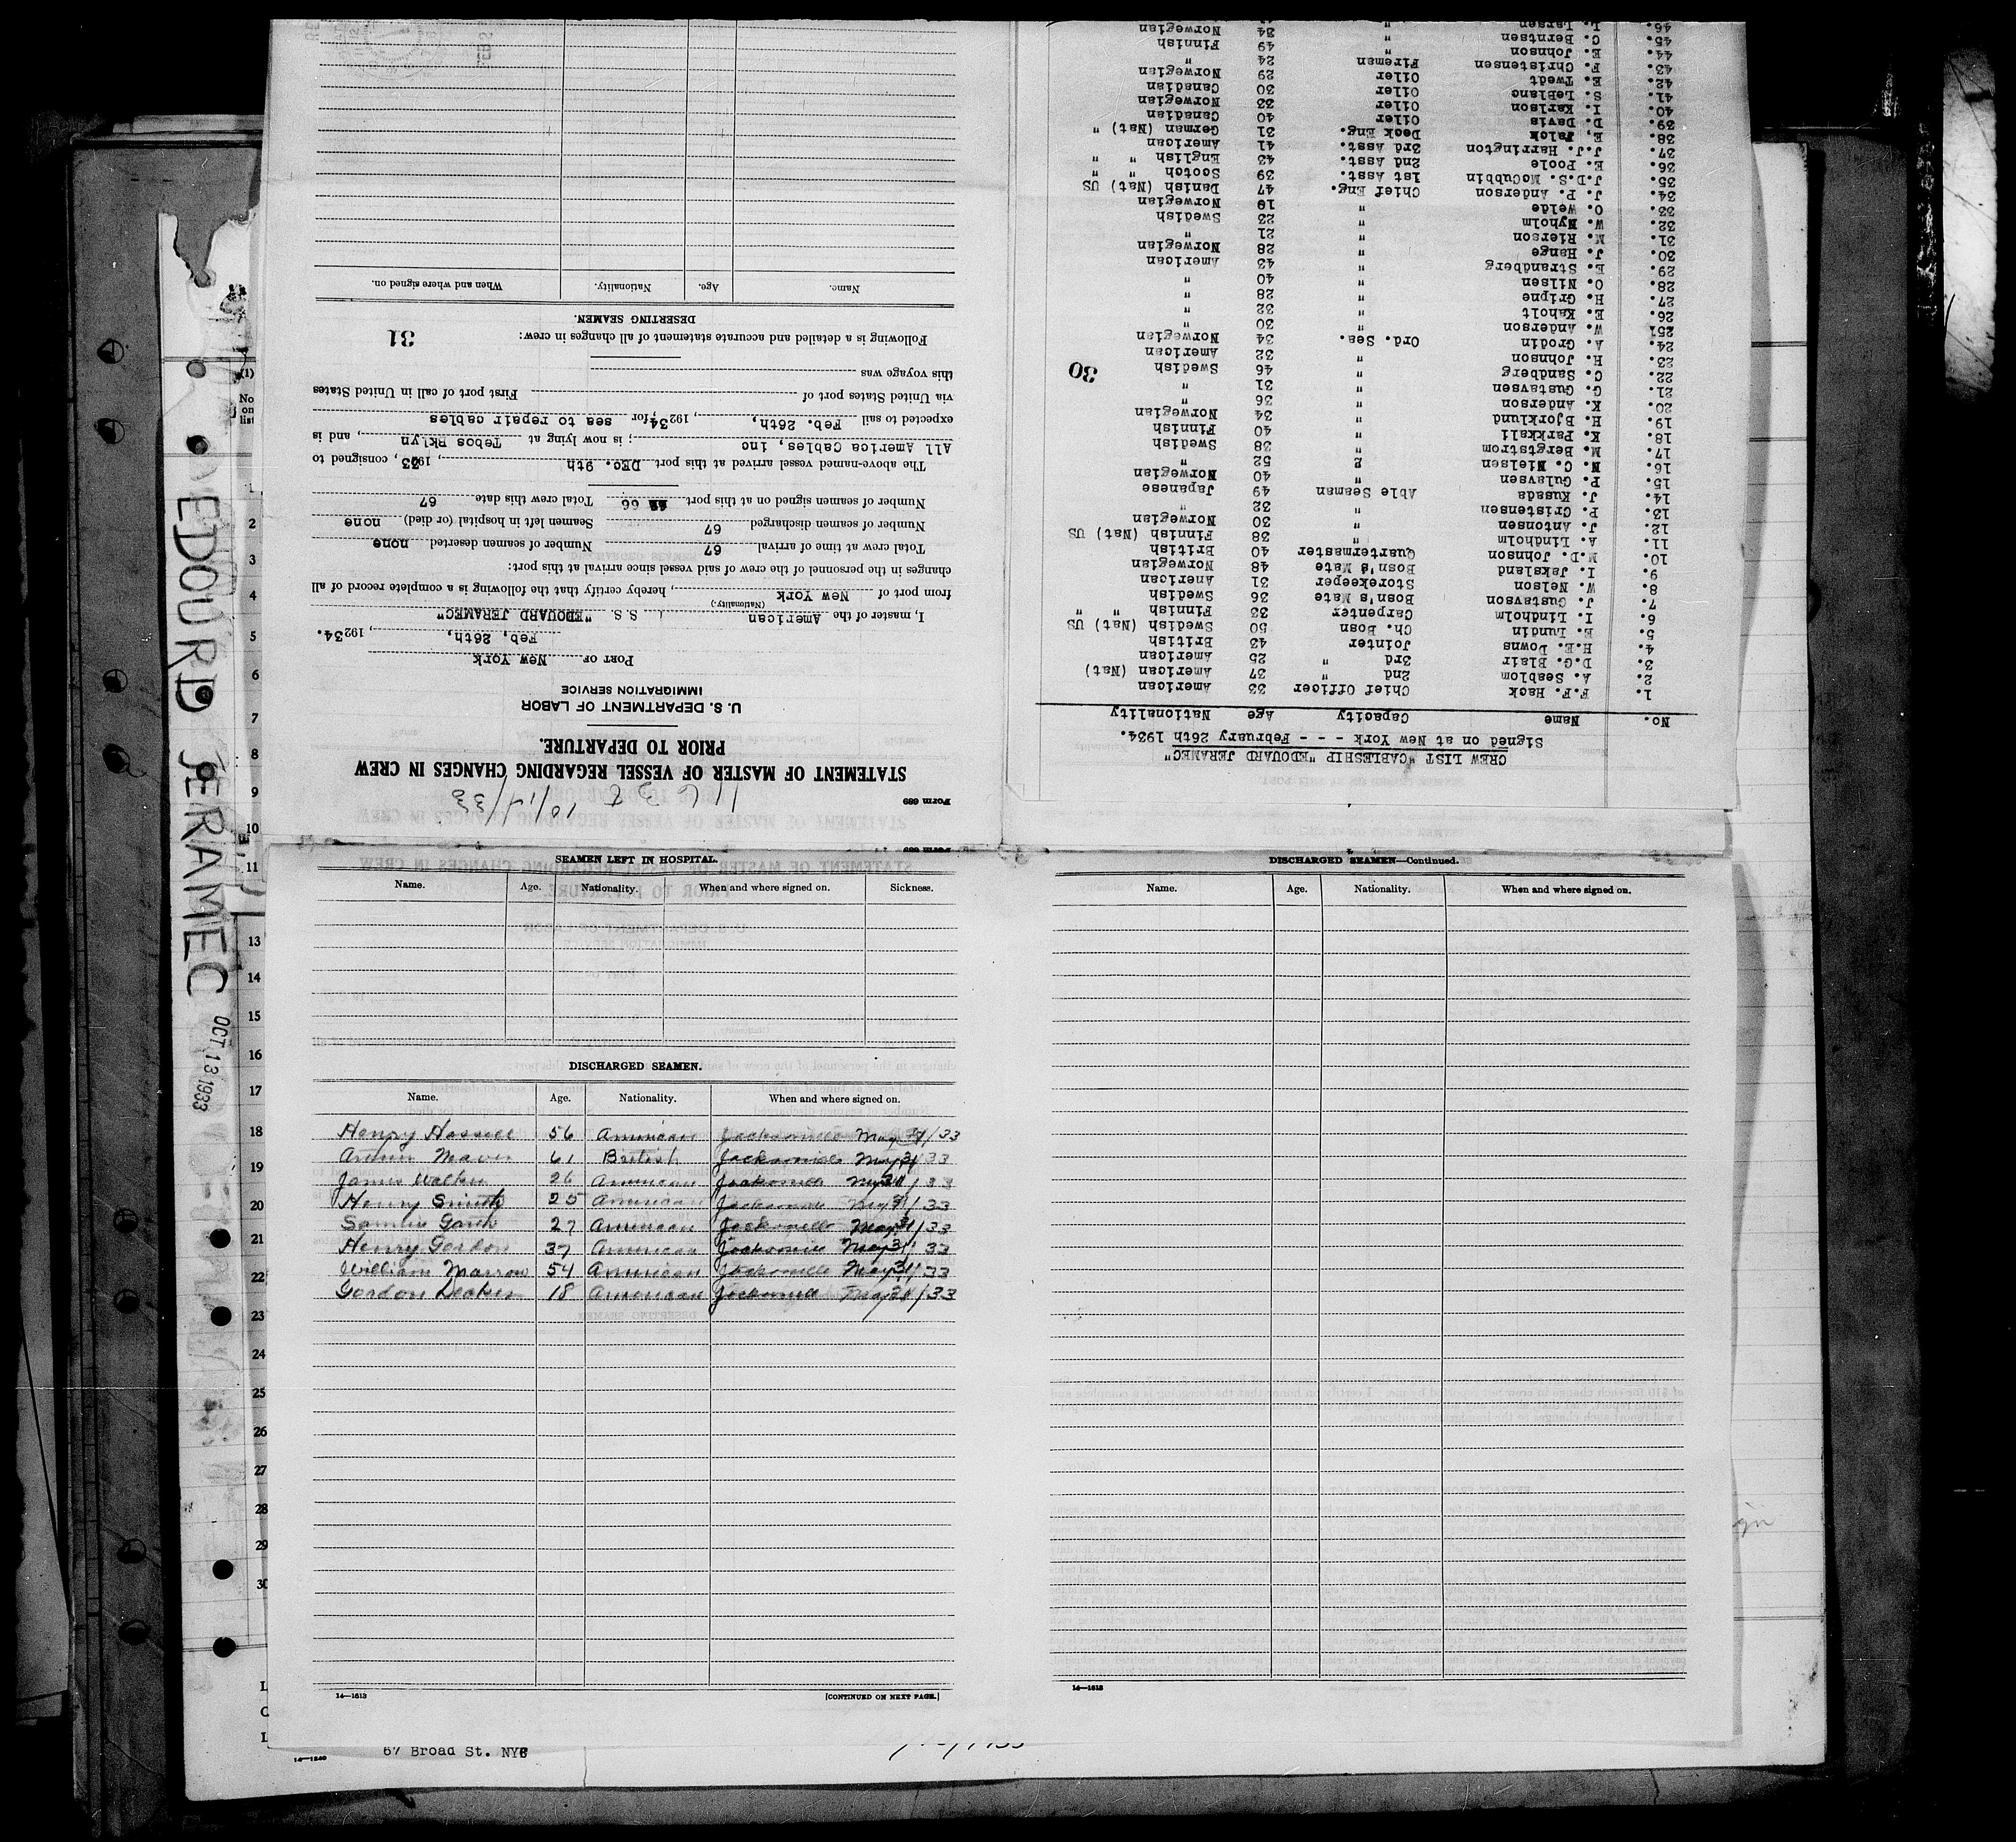 EDOURD JERAMEC OCT 13 1933
Form 689
1163 2 10/17/33
STATEMENT OF MASTER OF VESSEL REGARDING CHANGES IN CREW
PRIOR TO DEPARTURE.
U. S. DEPARTMENT OF LABOR
IMMIGRATION SERVICE
PORT OF New York
Feb, 26th, , 19234.
I, master of the American S. S. "EDOUARD JERAMEC"
(Nationality)
from port of New York , hereby certify that the following is a complete record of all
changes in the personnel of the crew of said vessel since arrival at this port:
Total crew at time of arrival 67 Number of seamen deserted none
Number of seamen discharged 67 Seamen left in hospital (or died) none
Number of seamen signed on at this port 66 Total crew this date 67
The above-named vessel arrived at this port DEC. 9th , 1933 , consigned to
All America Cables, inc ; is now lying at Tebos Bklyn , and is
expected to sail Feb. 26th, , 19234, for sea to repair cables
via United States port of First port of call in United States
this voyage was
Following is a detailed and accurate statement of all changes in crew:
31
DESERTING SEAMEN.
Name. Age. Nationality. When and where signed on.
CREW LIST "CABLESHIP "EDOUARD JERAMEC"
Signed on at New York - - - February 26th 1934.
No. Name Capacity Age Nationality
1. F.F. Hack Chief Officer 33 American
2. A. Seablom 2nd " 37 American (Nat)
3. D.G. Blair 3rd " 25 American
4. H.E. Downs Jointer 43 British
5. E. Lundin Ch. Bosn 50 Swedish (Nat) US
6. I. Lindholm Carpenter 33 Finnish " "
7. J. Gustavson Bosn's Mate 36 Swedish
8. W. Nelson Storekeeper 31 American
9. I. Jakeland Bosn's Mate 48 Norwegian
10. M.D. Johnson Quartermaster 40 British
11. A. Lindholm " 38 Finnish (Nat) US
12. J. Antonsen " 30 Norwegian
13. P. Cristensen " 32 "
14. J. Kusada Able Seaman 49 Japanese
15. P. Gulavsen " 40 Norwegian
16. N. C. Nielsen " 52 "
17. M. Bergstrom " 38 Swedish
18. K. Parkkali " 40 Finnish
19. H. Bjorklund " 34 Norwegian
20. K. Anderson " 36 "
21. G. Gustavsen " 31 "
22. C. Sandberg " 46 Swedish
30
23. H. Johnson " 32 American
24. A. Grodin Ord. Sea. 34 Norwegian
25. W. Anderson " 30 "
26. E. Kaholt " 32 "
27. H. Gripne " 28 "
28. O. Nilsen " 40 "
29. E. Strandberg " 43 American
30. J. Hange " 28 Norwegian
31. M. Rierson " 21 "
32. W. Nyholm " 23 Swedish
33. O. Welde " 19 Norwegian
34. J. P. Anderson Chief Eng. 47 Danish (Nat) US
35. J.D.S. McCubbin 1st Asst. 39 Scotch " "
36. E. Poole 2nd Asst. 43 English " "
37. J.J. Harrington 3rd Asst. 41 American
38. E, Jalck Deck Eng. 31 German (Nat) "
39. D. Davis Oiler 40 Canadian
40. I. Karlson Oiler 33 Norwegian
41. S. LeBlanc Oiler 30 Canadian
42. E. Twedt Oiler 29 Norwegian
43. F. Christensen Fireman 24 "
44. E. Johnson " 49 Finnish
45. C. Berntsen " 34 Norwegian
46. L. Larsen "
SEAMEN LEFT IN HOSPITAL.
Name. Age. Nationality. When and where signed on. Sickness.
DISCHARGED SEAMEN.
Name. Age. Nationality. When and where signed on.
Henry Hassell 56 American Jacksonville May 31/33
Arthur Maver 61 British Jacksonville May 31/33
James Walker 26 American Jacksonville May 31/33
Henry Smith 25 American Jacksonville May 31/33
27 American Jacksonville May 31/33
Henry Gordon 37 American Jacksonville May 31/33
William Marrow 54 American Jacksonville May 31/33
Gordon 18 American Jacksonville May 31/33
14—1613 [CONTINUED ON NEXT PAGE.]
DISCHARGED SEAMEN—Continued.
Name. Age. Nationality. When and where signed on.
14—1613
14—1240
67 Broad St. NYC